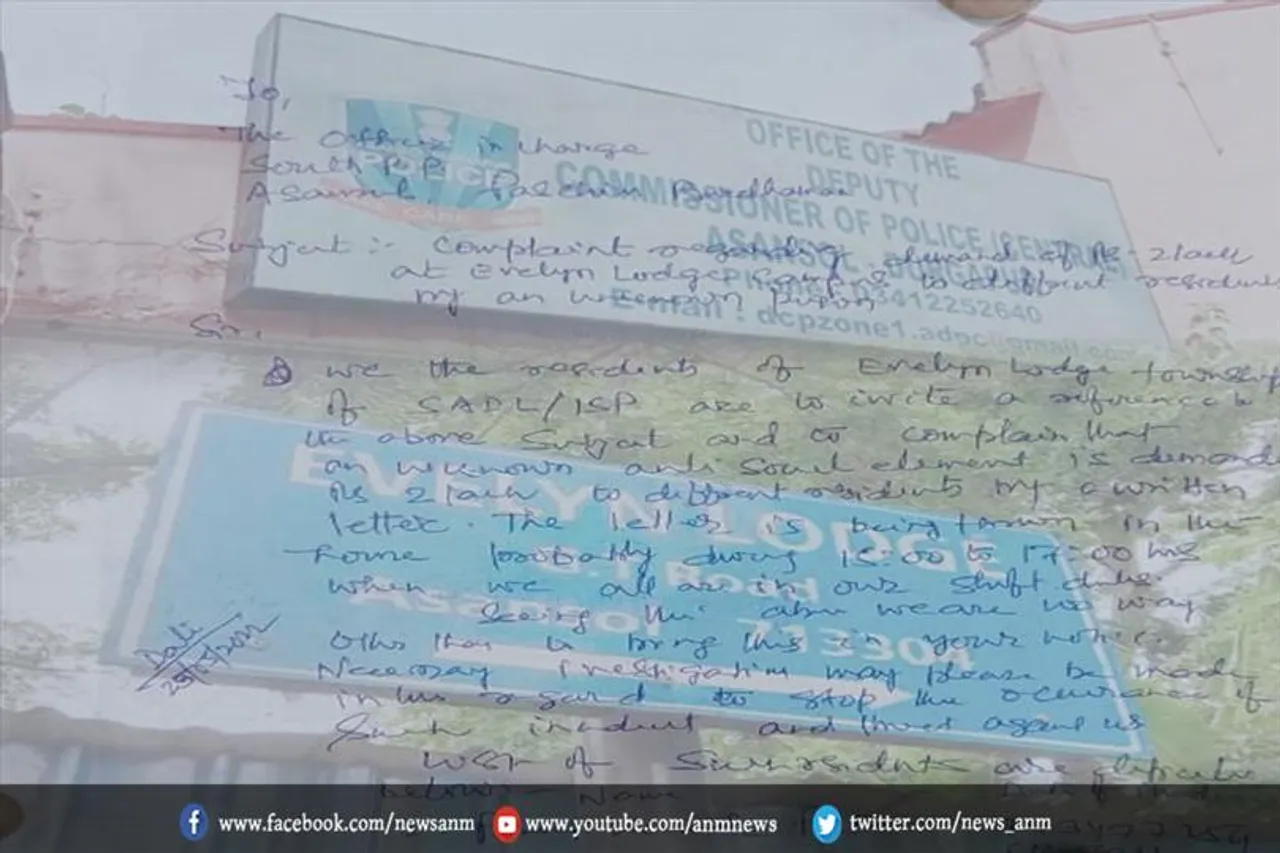 To,
The Officer in charge
South P.P
Asansol, Paschim Bardhaman
Subject :- Complaint regarding demand of Rs 2 lack
at Evelyn Lodge to different residents
by an unknown person
Sir,
We the residents of Evelyn Lodge township
of SADL/ISP are to invite a reference to
the above subject and to complain that
an unknown anti social element is demand
Rs 2 lack to different residents by a written
letter. The letter is being thrown in the
home probably during 15:00 to 17:00 hrs
when we all are in our shift duties.
Seeing the above we are no way
other than to bring this in your notice.
Necessary investigation may please be made
in this regard to stop the occurance of
such incident and threat against us
List of residents are
below - Name
Date
OFFICE OF THE
DEPUTY
COMMISSIONER OF POLICE (CENTRAL)
ASANSOL
03412252640
E-mail : dcpzone1.adpc@gmail.com
POLICE
EVELYN LODGE
ASANSOL 713304
www.facebook.com/newsanm
www.youtube.com/anmnews
twitter.com/news_anm